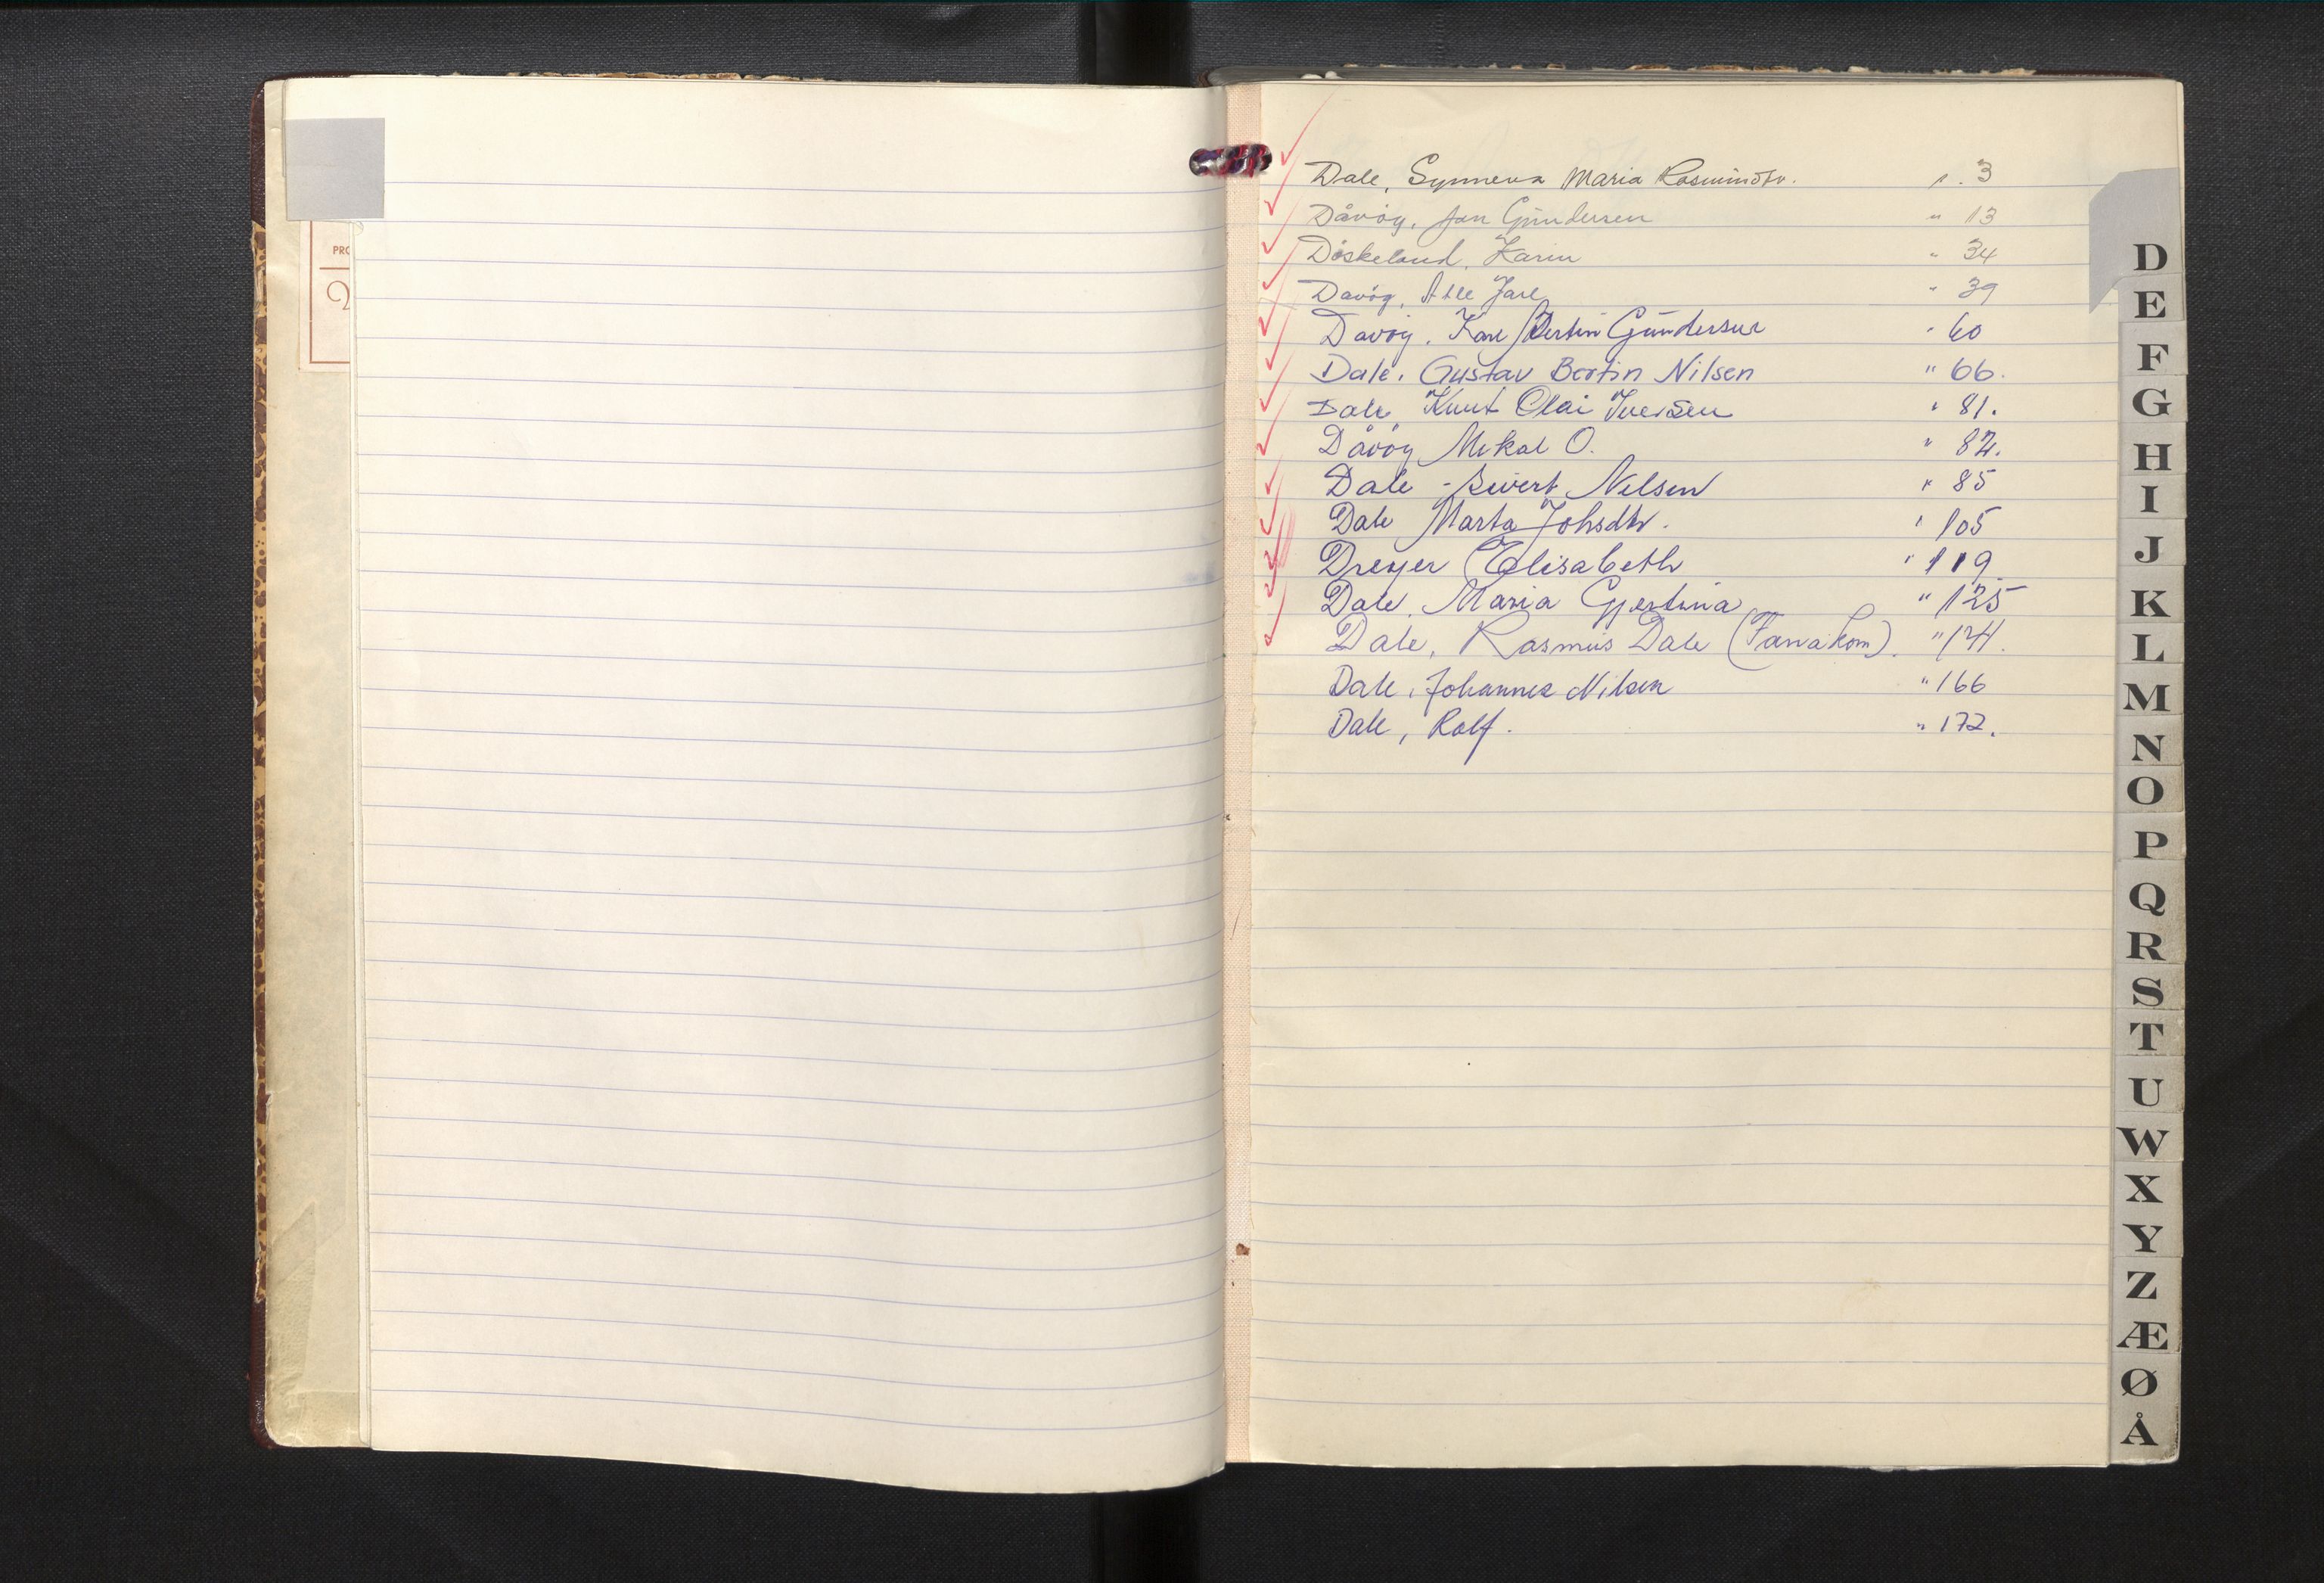 PRO
Dale, Synneva Maria Rasmusdtr. p. 3
Dåvøy, Jan Gundersen " 13
Døskeland, Karin " 34
Davøy, Atle Jarl " 39
Davøy, Karl Bertin Gundersen " 60
Dale, Gustav Bertin Nilsen " 66.
Dale Knut Olai Iversen " 81.
Dåvøy Mikal O. " 84.
Dale - Sivert Nilsen " 85
Dale Marta Johsdtr. " 105
Dreyer Elisabeth " 119
Dale, Maria Gjertina " 125
Dale, Rasmus Dale (Fana kom). "
Dale, Johannes Nilsen " 166
Dale, Rolf. " 172.
D
E
F
G
H
I
J
K
L
M
N
O
P
Q
R
S
T
U
W
X
Y
Z
Æ
Ø
Å